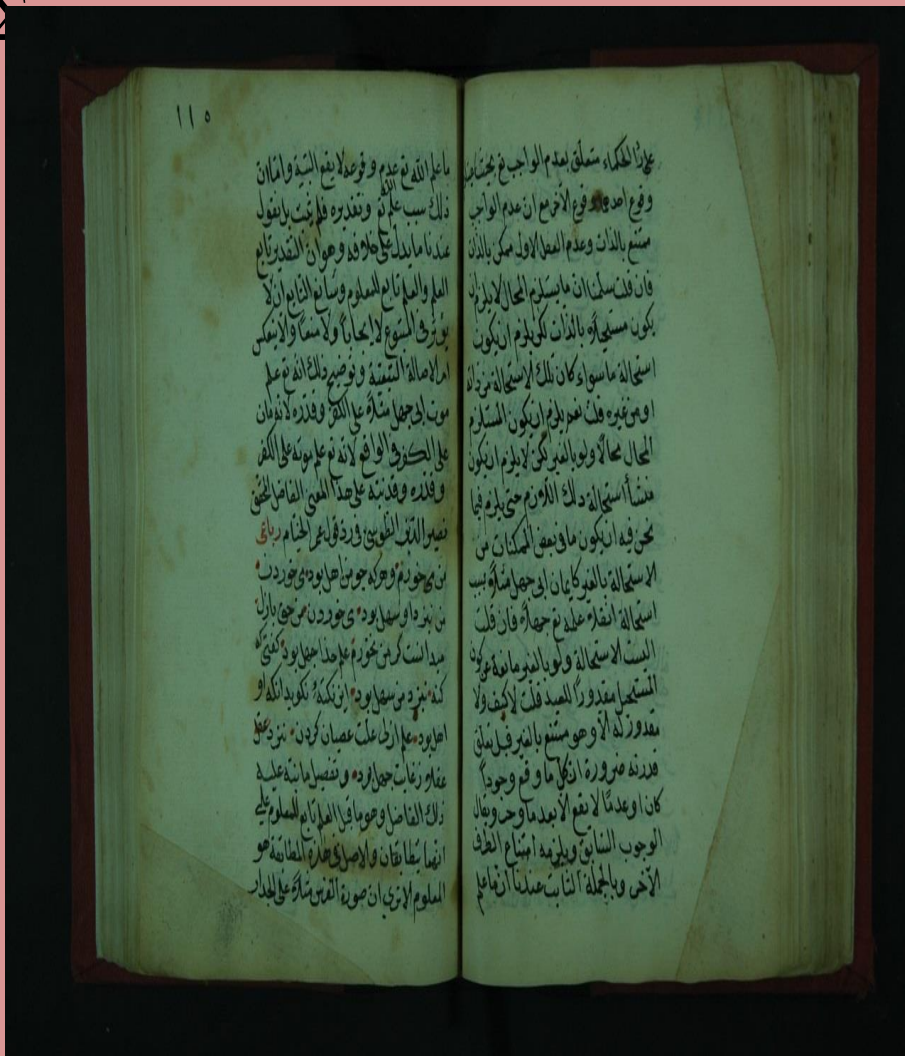 على رأى الحكماء متعلق بعدم الواجب تع بحيث
وقوع احدهما وقوع الآخر مع ان عدم الواجب
ممتنع بالذات وعدم المعلول الاول ممكن بالذات
فان قلت سلمت ان ما يستلزم المحال لا يلزم ان
يكون مستحيلاً بالذات لكن يلزم ان يكون
استحالة ما سواء كان تلك الاستحالة من ذاته
او من غيره قلت نعم يلزم ان يكون المستلزم
للمحال محالاً ولو بالغير لكن لا يلزم ان يكون
منشأ استحالة ذلك اللازم حتى يلزم فيما
نحن فيه ان يكون ما في بعض الممكنات من
الاستحالة بالغير كايمان ابى جهل مثلاً بسبب
استحالة انقلاب علمه تع جهلاً فان قلت
اليست الاستحالة ولو بالغير مانعة عن كون
المستحيل مقدوراً للعبد قلت لا كيف ولا
مقدور له الا وهو ممتنع بالغير قبل تعلق
قدرته ضرورة ان كل ما وقع وجوداً
كان او عدماً لا يقع الا بعد ما وجب ويقال
الوجوب السابق ويلزمه امتناع الطرف
الآخر وبالجملة الثابت عندنا ان ما علم
١١٥
ما علم الله تع عدم وقوعه لا يقع البتة واما ان
ذلك سبب علم الله تع وتقديره فلم يثبت بل نقول
عندنا ما يدل على خلافه وهو ان التقدير تابع
العلم والعلم تابع للمعلوم وشأنه التابع ان لا
يؤثر في المتبوع لا ايجاباً ولا منعاً والا ينعكس
امر الاصالة والتبعية وتوضيح ذلك انه تع علم
موت ابى جهل مثلاً على الكفر وقدره لانه مات
على الكفر في الواقع لا انه تع علم موته على الكفر
وقدره وقد نبه على هذا المعنى الفاضل المحقق
نصير الدين الطوسي في رد قول عمر الخيام رباعى
من مى خورم وهركه چو من اهل بود مى خوردن
من بنزد او سهل بود مى خوردن من حق بازل
ميدانست گر مى نخورم علم خدا جهل بود گفتى كه
گنه بنزد من سهل بود اين نكته نگويد آنكه او
اهل بود علم ازلى علت عصيان كردن نزد عقلا
ز غايت جهل بود وتفصيل ما نبه عليه
ذلك الفاضل وهو ما قيل العلم تابع للمعلوم على
انهما يتطابقان والاصل في هذه المطابقة هو
المعلوم الا ترى ان صورة الفرس مثلاً على الجدار